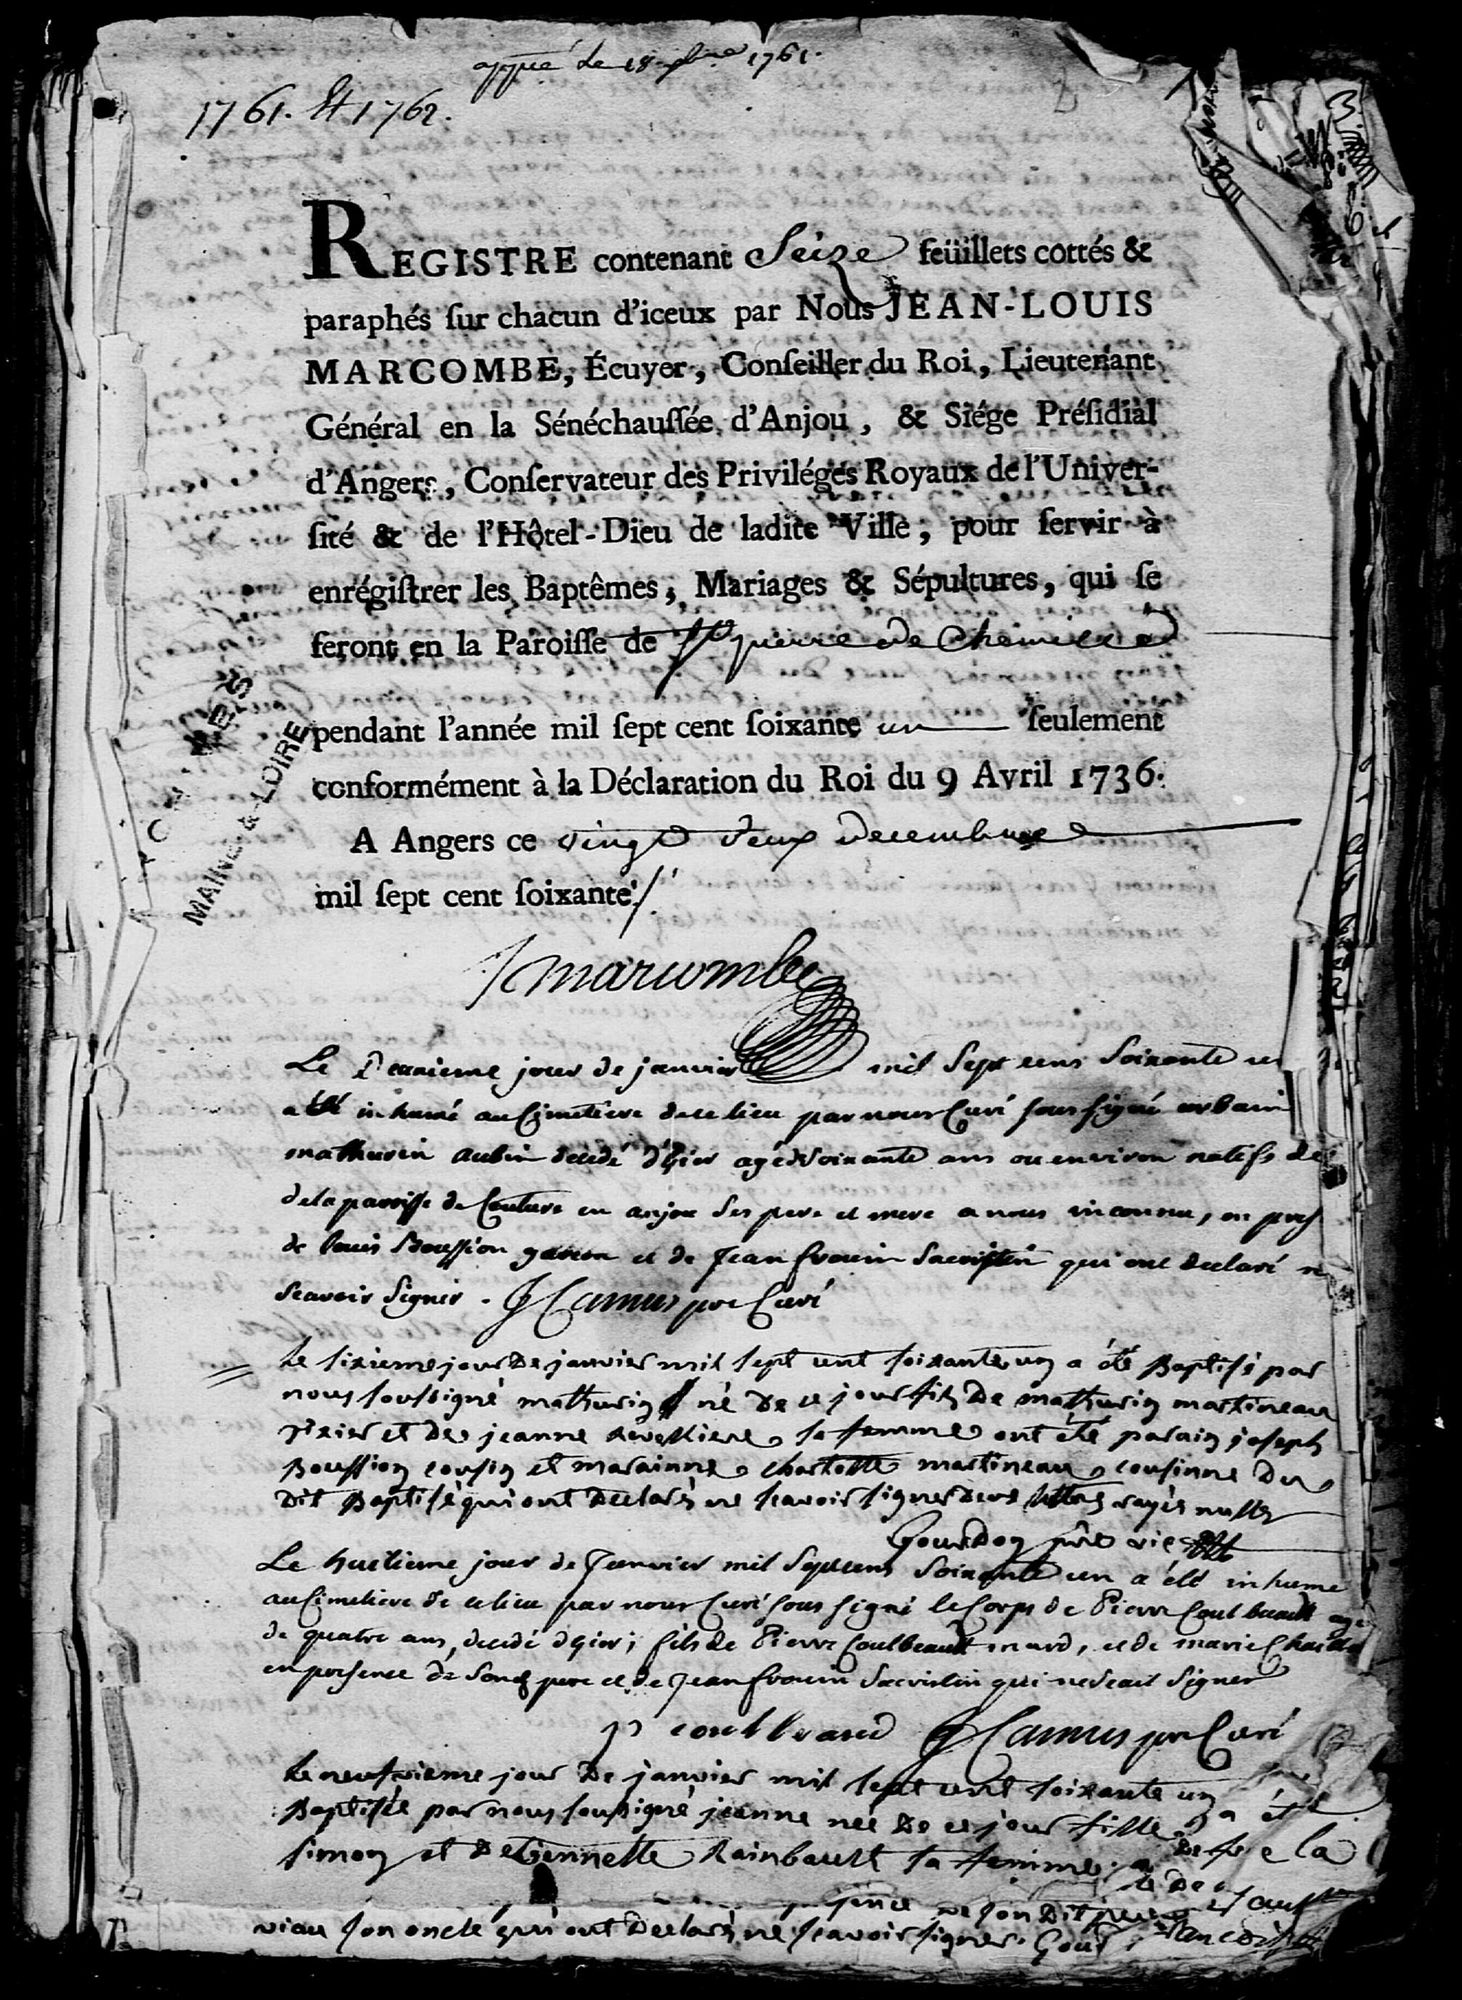 1761.
1761. Et 1762.
REGISTRE contenant Seize feüillets cottés &
paraphés ſur chacun d'iceux par Nous JEAN-LOUIS
MARCOMBE, Écuyer, Conſeiller du Roi, Lieutenant
Général en la Sénéchauſſée d'Anjou, & Siége Préſidial
d'Angers, Conſervateur des Priviléges Royaux de l'Univer-
ſité & de l'Hôtel-Dieu de ladite Ville, pour ſervir à
enrégiſtrer les Baptêmes, Mariages & Sépultures, qui ſe
feront en la Paroiſſe de St pierre de Chemillé
pendant l'année mil ſept cent ſoixante un ſeulement
conformément à la Déclaration du Roi du 9 Avril 1736.
MAINE & LOIRE
A Angers ce vingt deux decembre
mil ſept cent ſoixante.
Marcombe
Le deuxieme jour de janvier mil Sept cens Soixante un
a été inhumé au Cimetiere de ce lieu par nous Curé sous signé urbain
mathurin aubin decedé d'hier agé de soixante ans ou environ natifs de
de la paroisse de Couture en anjou ses pere et mere a nous inconnu, en pres
de louis Boussion garcon et de Jean frouin Sacristin qui ont declaré ne
Scavoir Signer. Camus ptre Curé
Le sixieme jour De janvier mil sept cent soixante un a été Baptisé par
nous soussigné mathurin né De ce jour fils De mathurin martineau
et De jeanne sa femme ont été parain joseph
Boussion cousin et marainne charlotte martineau cousinne Du
Dit Baptisé qui ont Declaré ne scavoir signer deux lettres rayés nulles
Gourdon ptre vic
Le huitieme jour de Janvier mil Sept cens Soixante un a été inhumé
au Cimetiere de ce lieu par nous Curé sous signé le Corps de Pierre Coulbeault agé
de quatre ans, decedé d'hier, fils de Pierre Coulbeault et de marie
en presence de Son pere et de Jean frouin Sacristin qui ne scait Signer
P coulbeaud Camus ptre Curé
Le neufvieme jour De janvier mil sept cent soixante un a été
Baptisée par nous soussigné jeanne née De ce jour fille De
simon et De tiennette Rainbault sa femme
De son Dit pere et
viau son oncle qui ont Declaré ne scavoir signer.